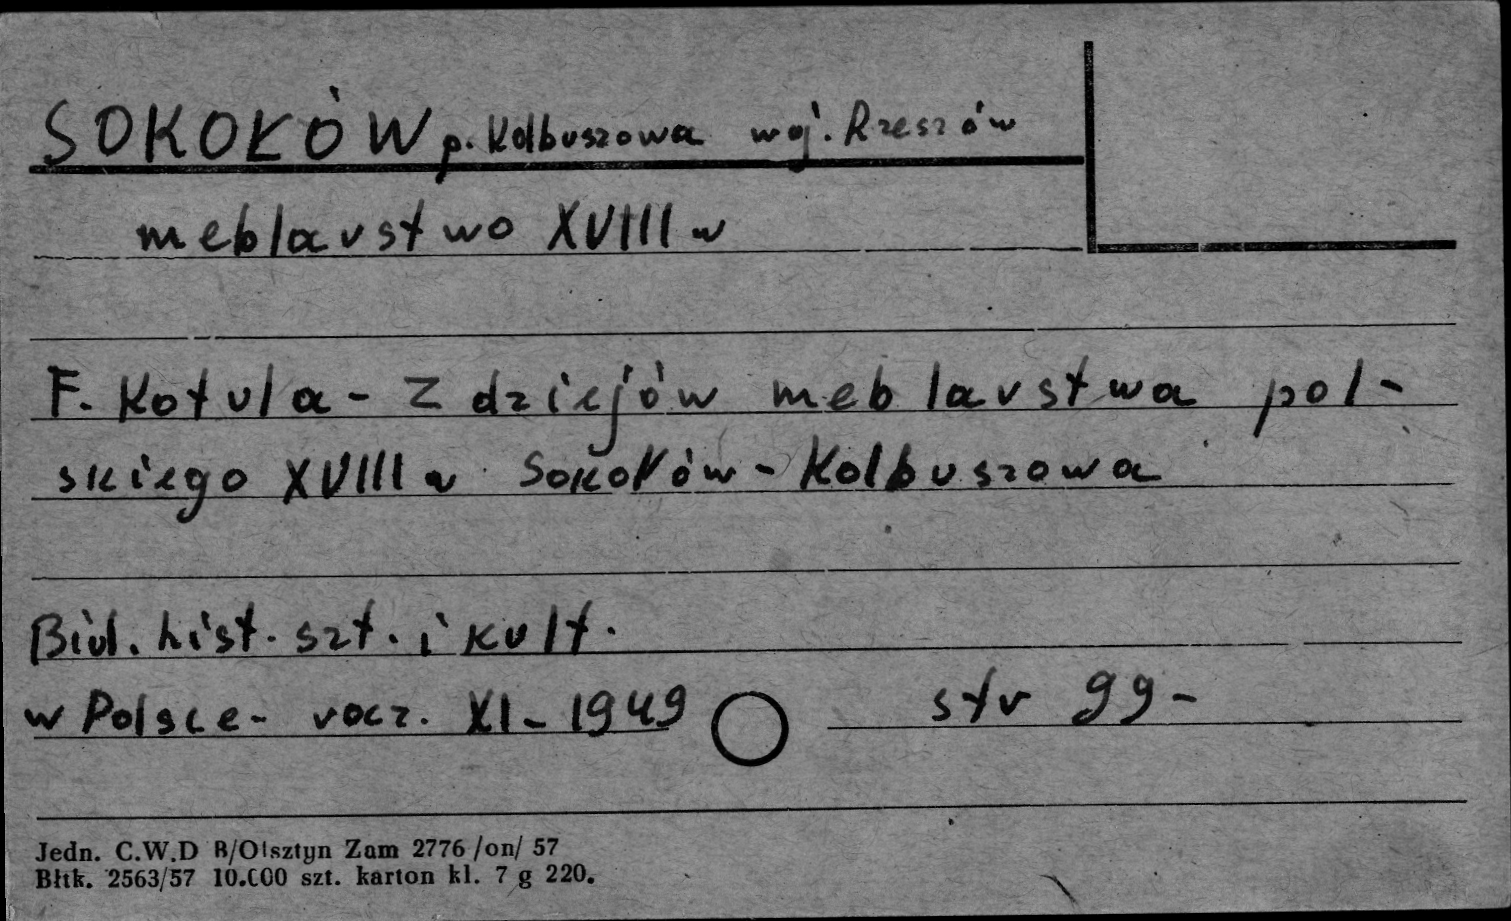 SOKOŁÓW p. Kolbuszowa woj. Rzeszów
meblarstwo XVIII w
F. Kotula - Z dziejów meblarstwa pol-
skiego XVIII w Sokołów - Kolbuszowa
Biul. hist. szt. i kult.
w Polsce - rocz. XI - 1949 str 99 -
Jedn. C.W.D B/Olsztyn Zam 2776 /on/ 57
Błtk. 2563/57 10.000 szt. karton kl. 7 g 220.